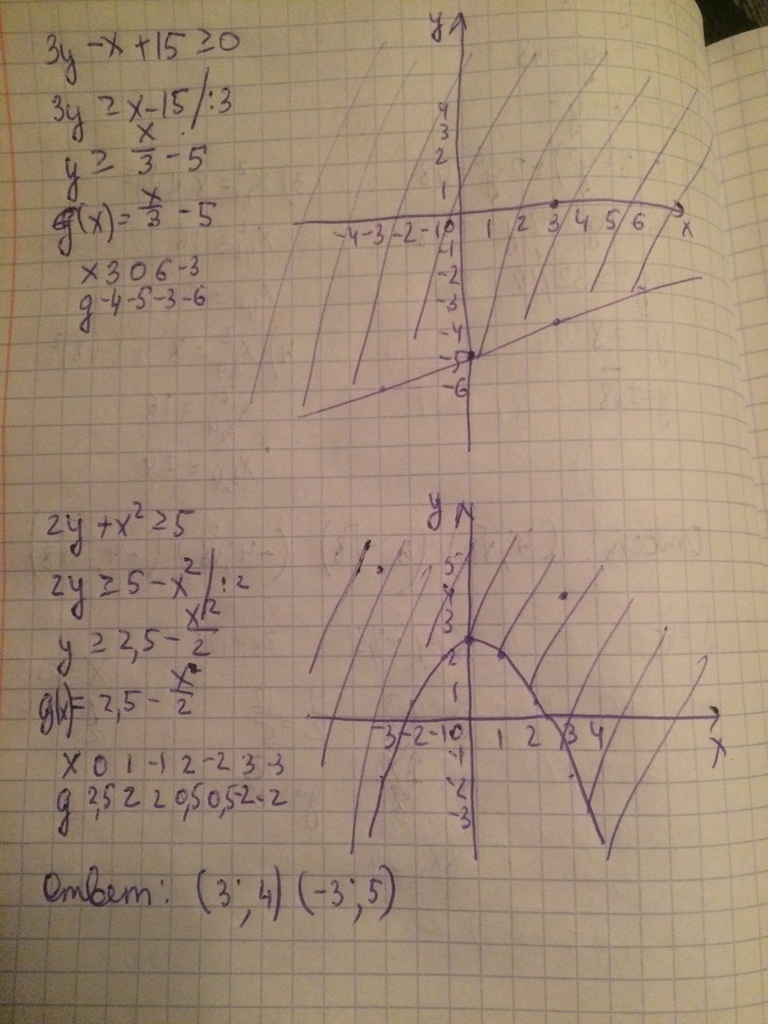 3y - x + 15 ≥ 0
3y ≥ x - 15 / :3
y ≥ x/3 - 5
g(x) = x/3 - 5
x 3 0 6 -3
g -4 -5 -3 -6
y
4
3
2
1
-4 -3 -2 -1 0 1 2 3 4 5 6 x
-1
-2
-3
-4
-5
-6
2y + x² ≥ 5
2y ≥ 5 - x² / :2
y ≥ 2,5 - x²/2
g(x) = 2,5 - x²/2
x 0 1 -1 2 -2 3 -3
g 2,5 2 2 0,5 0,5 -2 -2
y
5
4
3
2
1
-3 -2 -1 0 1 2 3 4 x
-1
-2
-3
Ответ: (3; 4) (-3; 5)